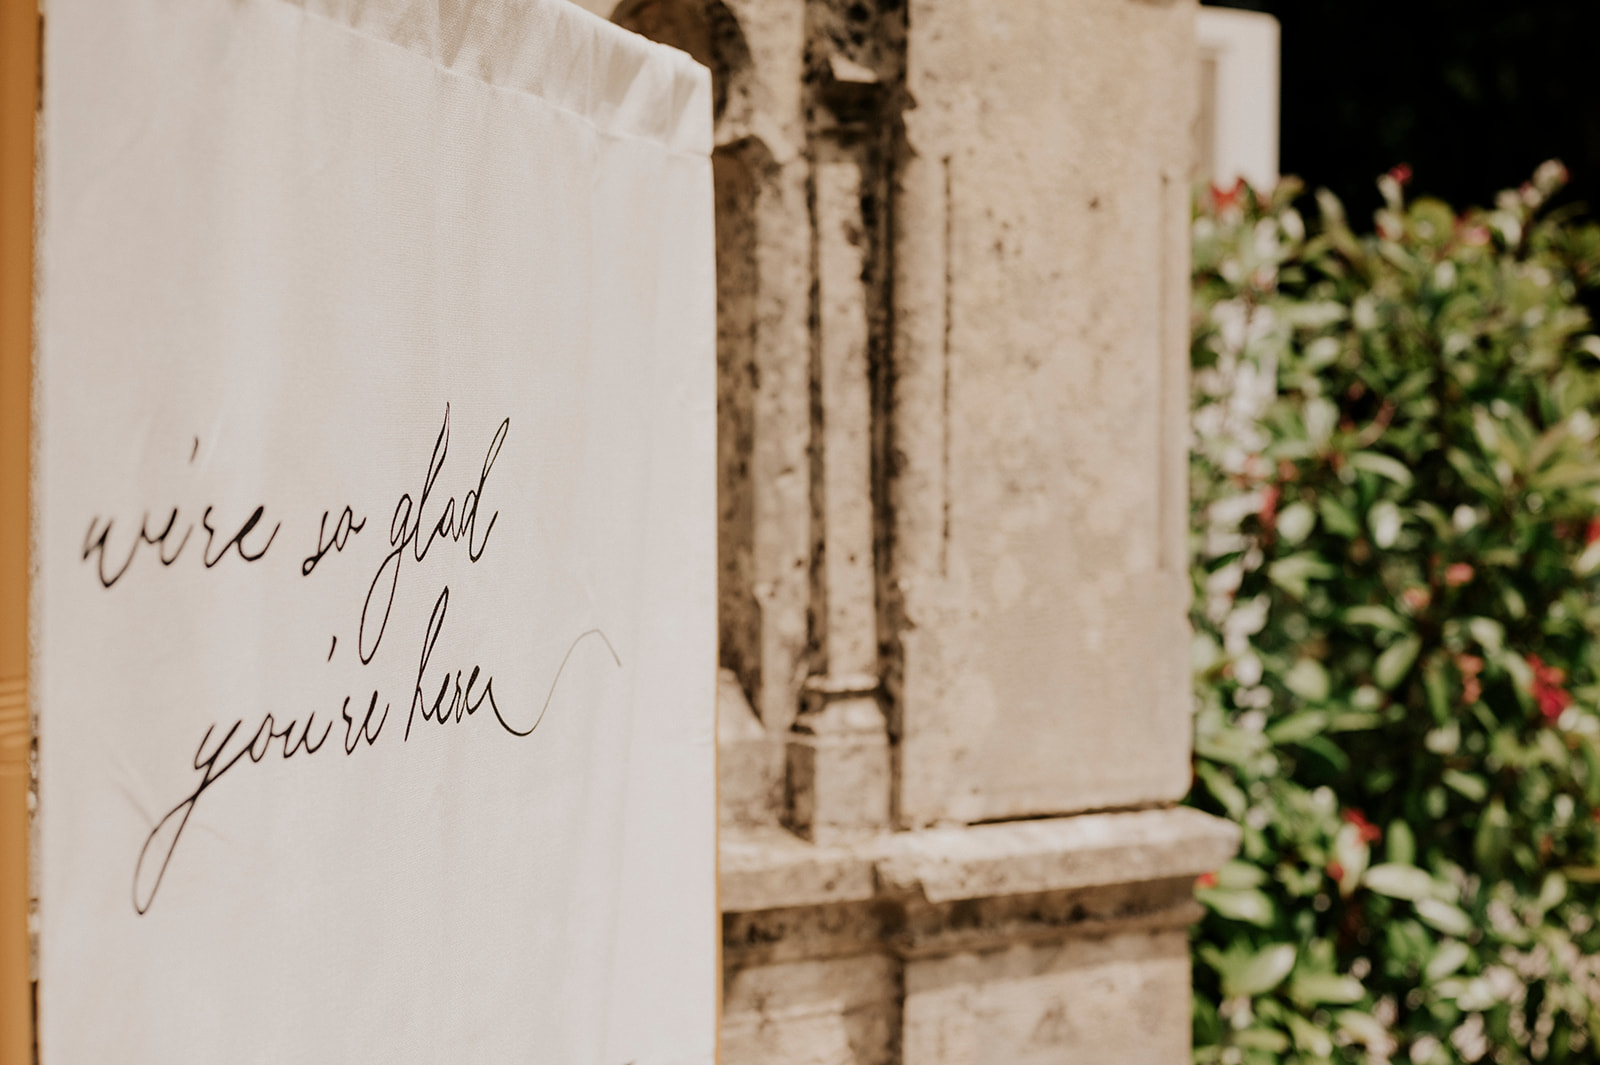 we're so glad
you're here